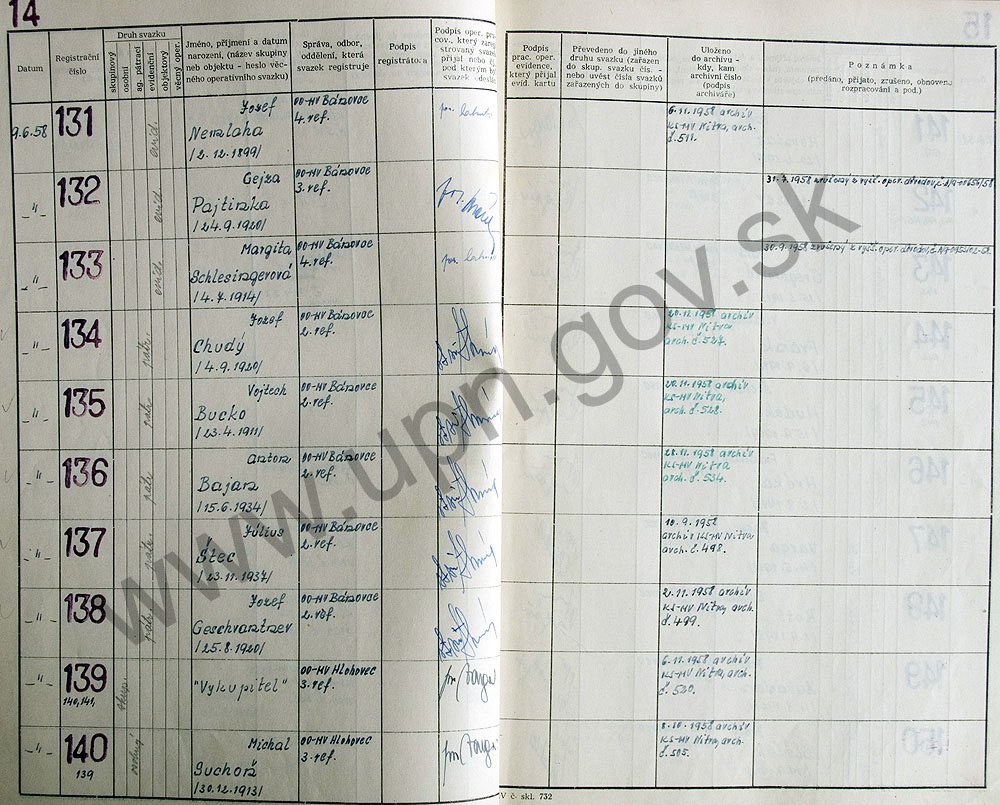 14
Datum
Registrační číslo
Druh svazku
skupinový
osobní
ag. pátrací
evidenční
objektový
věcný oper.
Jméno, příjmení a datum
narození, (název skupiny
neb objektu - heslo věc-
ného operativního svazku)
Správa, odbor,
oddělení, která
svazek registruje
Podpis
registrátora
Podpis oper. pra
cov., který zareg
strovaný svazek
přijal nebo
pod kterým by
svazek
Podpis
prac. oper.
evidence,
který přijal
evid. kartu
Převedeno do jiného
druhu svazku (zařazen
do skup. svazku čís. -
nebo uvést čísla svazků
zařazených do skupiny)
Uloženo
do archivu -
kdy, kam
archivní číslo
(podpis
archiváře)
Poznámka
(předáno, přijato, zrušeno, obnoveno
rozpracování a pod.)
9.6.58 131 evid. Jozef 00-MV Bánovce 6.11.1958 archív
Nemlaha 4. ref. KS-MV Nitra, arch.
/2.12.1899/ č. 511.
-"- 132 evid. Gejza 00-MV Bánovce
Pajtinka 3. ref.
/24.9.1920/
-"- 133 evid. Margita 00-MV Bánovce
Schlesingerová 4. ref.
/4.7.1914/
-"- 134 pátr. Jozef 00-MV Bánovce 20.11.1958 archív
Chudý 2. ref. KS-MV Nitra
/4.9.1920/ arch. č. 527.
-"- 135 pátr. Vojtech 00-MV Bánovce 20.11.1958 archív
Bucko 2. ref. KS-MV Nitra,
/23.4.1911/ arch. č. 528.
-"- 136 pátr. Anton 00-MV Bánovce 28.11.1958 archív
Bajan 2. ref. KS-MV Nitra
/15.6.1934/ arch. č. 534.
-"- 137 pátr. Július 00-MV Bánovce 10.9.1958
Štec 2. ref. archív KS-MV Nitra
/23.11.1937/ arch. č. 498.
-"- 138 pátr. Jozef 00-MV Bánovce 2.11.1958 archív
Geschvantner 2. ref. KS-MV Nitra, arch.
/25.8.1920/ č. 499.
-"- 139 skup. 00-MV Hlohovec 6.11.1958 archív
140,141, "Vykupitel" 3. ref. KS-MV Nitra, arch.
č. 520.
-"- 140 osobný Michal 00-MV Hlohovec 8.10.1958 archív
139 Suchoň 3. ref. KS-MV Nitra, arch.
/30.12.1913/ č. 505.
V č. skl. 732
www.upn.gov.sk